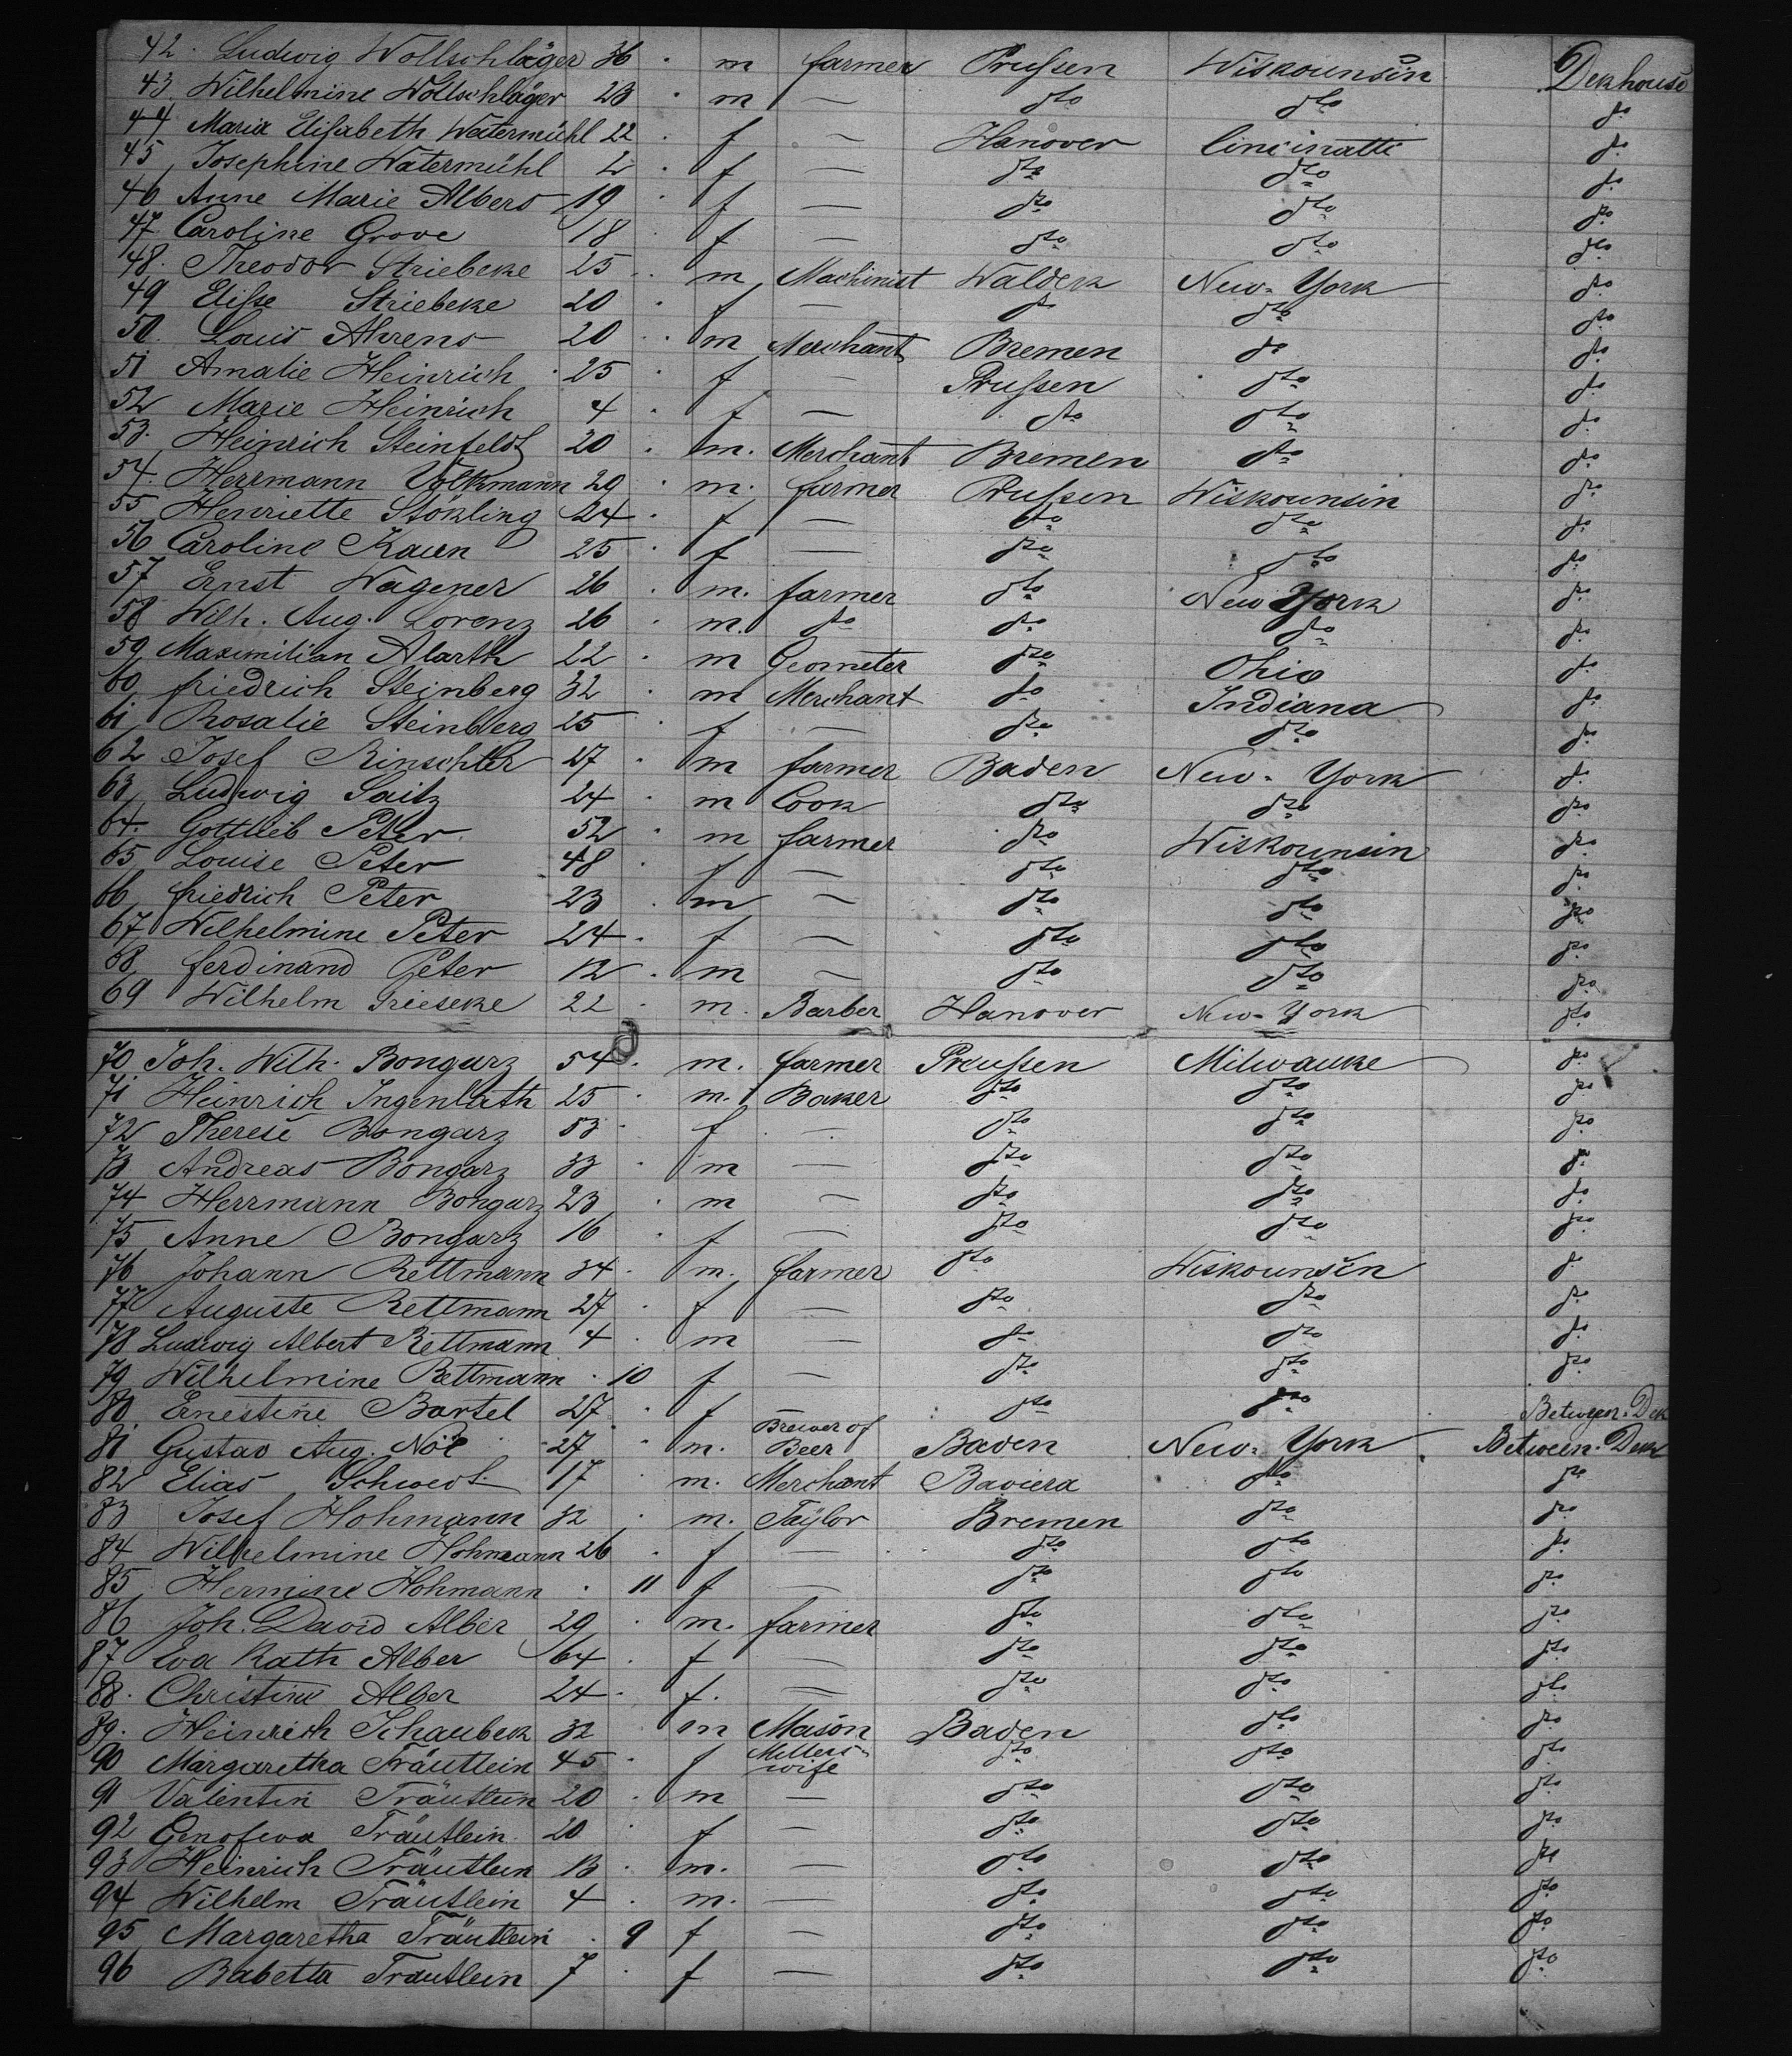 42. Ludwig Wollschläger 36 . m farmer Prussen Wiskounsin Dekhouse
43 Wilhelmine Wollschläger 23 . m — dto dto do
44 Maria Elisabeth Watermühl 22 . f — Hanover Cincinatti do
45 Josephine Watermühl 2 . f — dto dto do
46 Anne Marie Albers 19 . f — dto dto dto
47 Caroline Grove 18 . f — dto dto dto
48. Theodor Striebeke 25 . m Machinist Waldek New-York dto
49 Elisse Striebeke 20 . f — do dto dto
50. Louis Ahrens 20 . m Merchant Bremen do do
51 Amalie Heinrich 25 . f — Prussen dto do
52 Marie Heinrich 4 . f — dto dto do
53. Heinrich Steinfeldt 20 . m. Merchant Bremen dto do
54. Herrmann Volkmann 29 . m. farmer Prussen Wiskounsin dto
55 Henriette Stökling 24 . f — dto dto do
56 Caroline Kaun 25 . f — dto dto do
57 Ernst Wagener 26 . m. farmer dto New York do
58 Wilh. Aug. Lorenz 26 . m. dto dto dto do
59 Maximilian Alarth 22 . m Geometer dto Ohio do
60 friedrich Steinberg 32 . m Merchant do Indiana do
61 Rosalie Steinberg 25 . f — dto dto do
62 Josef Rinschler 27 . m farmer Baden New-York do
63 Ludwig Saitz 24 . m Cook dto dto dto
64. Gottlieb Peter 52 . m farmer dto Wiskounsin dto
65 Louise Peter 48 . f — dto dto do
66 friedrich Peter 23 . m — dto dto dto
67 Wilhelmine Peter 24 . f — dto dto do
68 ferdinand Peter 12 . m — dto dto dto
69 Wilhelm Grieseke 22 . m. Barber Hanover New-York dto
70 Joh. Wilh. Bongarz 54 . m. farmer Preussen Milwauke do
71 Heinrich Ingenlath 25 . m. Baker dto dto do
72 Therese Bongarz 53 . f — dto dto do
73 Andreas Bongarz 33 . m — dto dto do
74 Herrmann Bongarz 23 . m — dto dto do
75 Anne Bongarz 16 . f — dto dto do
76 Johann Rettmann 34 . m. farmer dto Wiskounsin do
77 Auguste Rettmann 27 . f — dto dto do
78 Ludwig Albert Rettmann 4 . m — do dto do
79 Wilhelmine Rettmann . 10 f — dto dto dto
80. Ernestine Bartel 27 . f — dto dto Between-Dek
81 Gustav Aug. Nöe 27 . m. Brewer of Beer Baden New-York Between-Dek
82 Elias Schwedt 17 . m. Merchant Baviera dto do
83 Josef Hohmann 32 . m. Taylor Bremen dto do
84 Wilhelmine Hohmann 26 . f — dto dto do
85 Hermine Hohmann . 11 f — dto dto do
86 Joh. David Alber 29 . m. farmer dto dto do
87 Eva Kath Alber 64 . f — dto dto dto
88. Christine Alber 24 . f. — dto dto dto
89. Heinrich Schaubek 32 m Mason Baden dto do
90 Margaretha Träutlein 45 . f Millers-wife dto dto dto
91 Valentin Träutlein 20 . m — dto dto dto
92 Genofeva Träutlein 20 . f — dto dto do
93 Heinrich Träutlein 13 . m. — dto dto dto
94 Wilhelm Träutlein 4 . m. — dto dto dto
95 Margaretha Träutlein . 9 f — dto dto dto
96 Babetta Träutlein 7 . f — dto dto dto